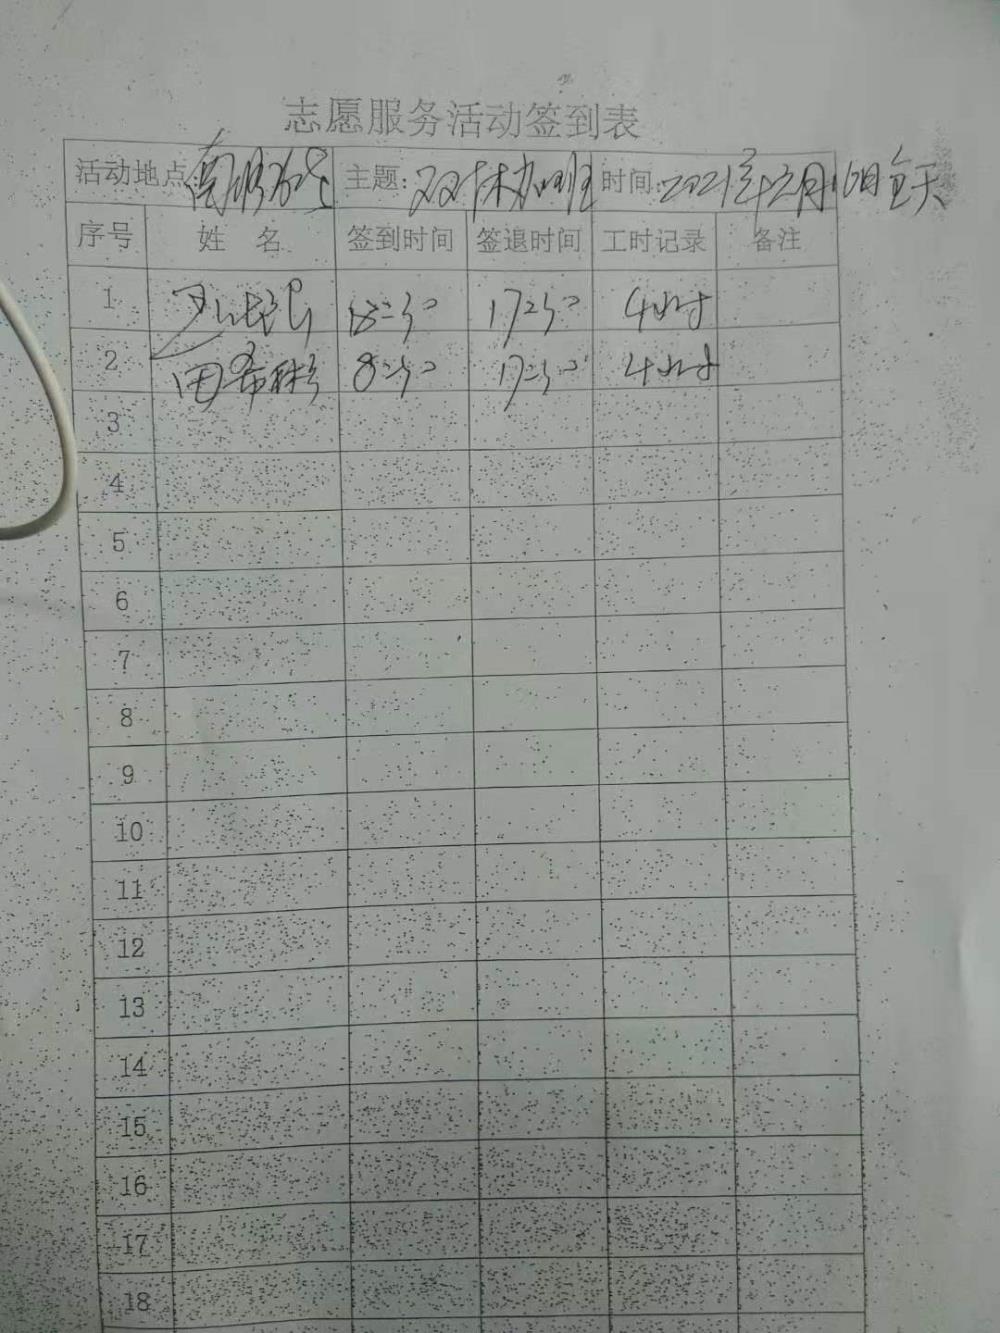 志愿服务活动签到表
活动地点 主题: 双休 班 时间: 2021年12月 日全天
序号 姓 名 签到时间 签退时间 工时记录 备注
1 8:30 17:30 4小时
2 田希 8:30 17:30 4小时
3
4
5
6
7
8
9
10
11
12
13
14
15
16
17
18